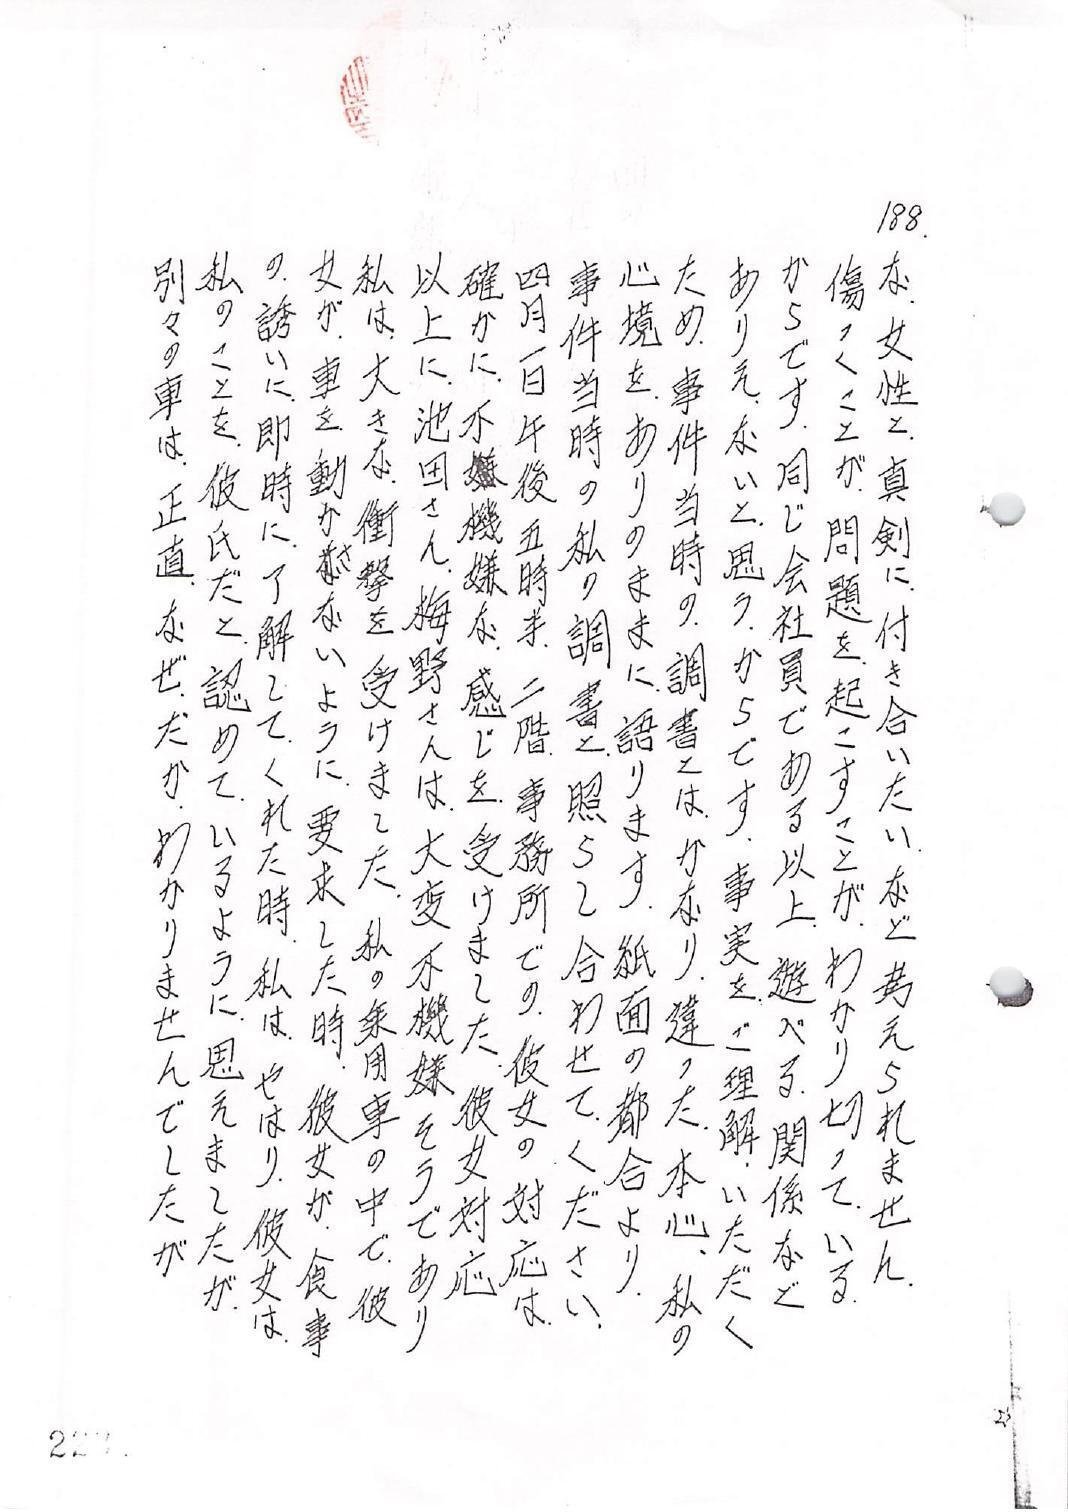 188.
な、女性と、真剣に、付き合いたい、など考えられません、
傷つくことが、問題を、起こすことが、わかり切って、いる、
からです、同じ会社員である以上、遊べる、関係など
ありえ、ないと、思う、からです、事実を、ご理解、いただく
ため、事件当時の、調書とは、かなり、違った、本心、私の
心境を、ありのままに、語ります、紙面の都合より、
事件当時の私の調書と、照らし合わせて、ください、
四月一日午後五時半、二階、事務所での、彼女の対応は、
確かに、不機嫌な、感じを、受けました、彼女対応
以上に、池田さん、梅野さんは、大変不機嫌そうであり
私は、大きな、衝撃を受けました、私の乗用車の中で、彼
女が、車を動かさないように、要求した時、彼女が、食事
の、誘いに、即時に、了解して、くれた時、私は、やはり、彼女は、
私のことを、彼氏だと、認めて、いるように、思えましたが、
別々の車は、正直、なぜ、だか、わかりませんでしたが